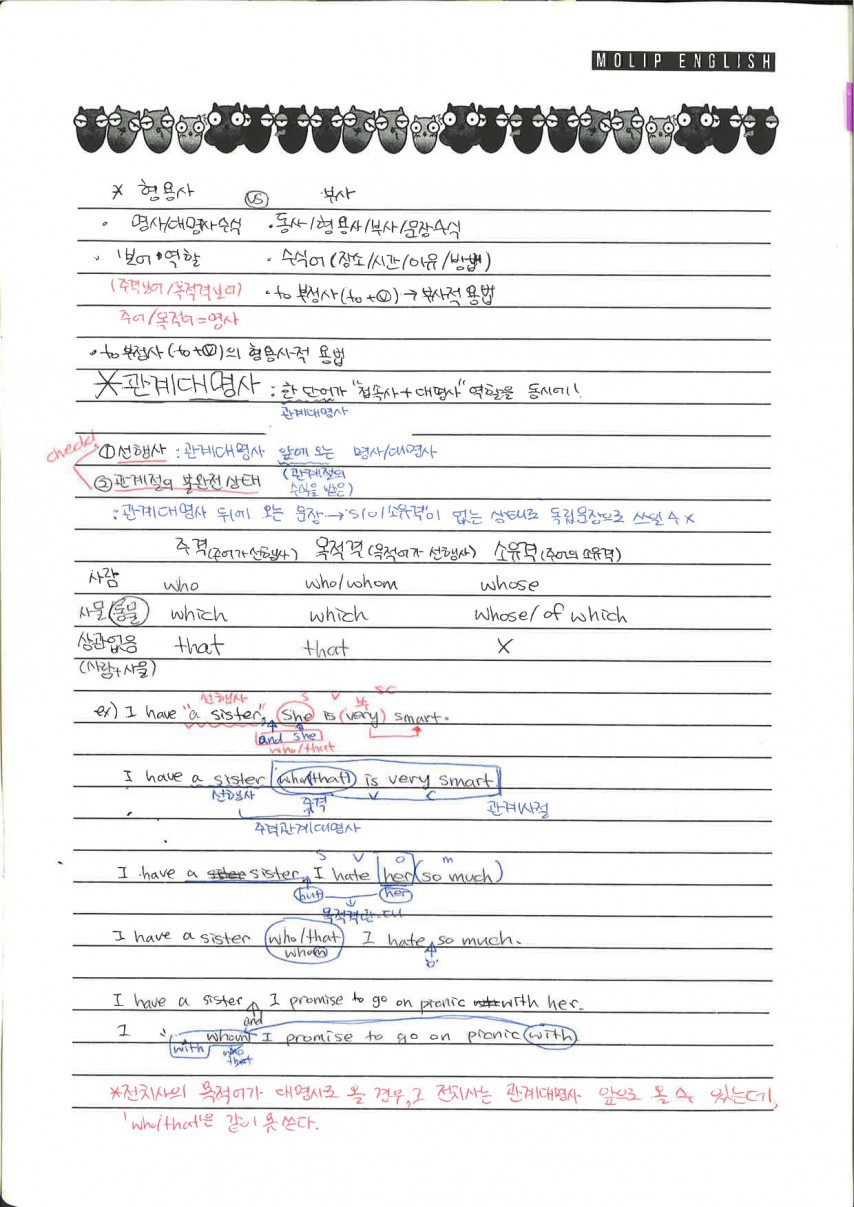 MOLIP ENGLISH
* 형용사 vs 부사
· 명사/대명사수식 · 동사/형용사/부사/문장수식
· 보어 역할 · 수식어 (장소/시간/이유/방법)
(주격보어/목적격보어) · to 부정사 (to+V) → 부사적 용법
주어/목적어=명사
· to부정사 (to+V)의 형용사적 용법
* 관계대명사 : 한 단어가 "접속사+대명사" 역할을 동시에!
관계대명사
check!
① 선행사 : 관계대명사 앞에 오는 명사/대명사
② 관계절의 불완전상태 (관계절의 수식을 받은)
: 관계대명사 뒤에 오는 문장 → S(O/소유격)이 없는 상태로 독립문장으로 쓰일 수 x
주격(주어가 선행사) 목적격(목적어가 선행사) 소유격(주어의 소유격)
사람 who who/whom whose
사물/동물 which which whose/of which
상관없음 that that X
(사람+사물)
선행사 S V 부 SC
ex) I have "a sister", She is (very) smart.
and she
who/that
I have a sister who(that) is very smart
선행사 주격 V C 관계사절
주격관계대명사
S V O m
I have a sister, I hate her (so much)
but her
목적격관·대
I have a sister who/that I hate so much.
whom
I have a sister I promise to go on picnic with her.
and
I whom I promise to go on picnic with
with who
that
*전치사의 목적어가 대명사로 올 경우, 그 전치사는 관계대명사 앞으로 올 수 있는데,
'who/that'은 같이 못 쓴다.